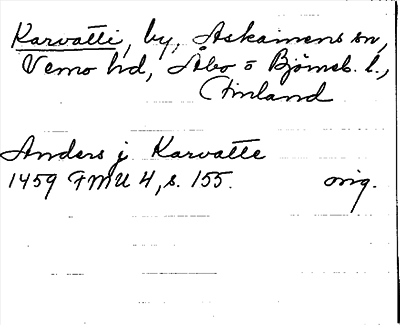 Karvatti, by, Askainens sn,
Vemo hd, Åbo o Björneb. l.,
Finland
Anders j Karvatte
1459 FMU 4, s. 155. orig.